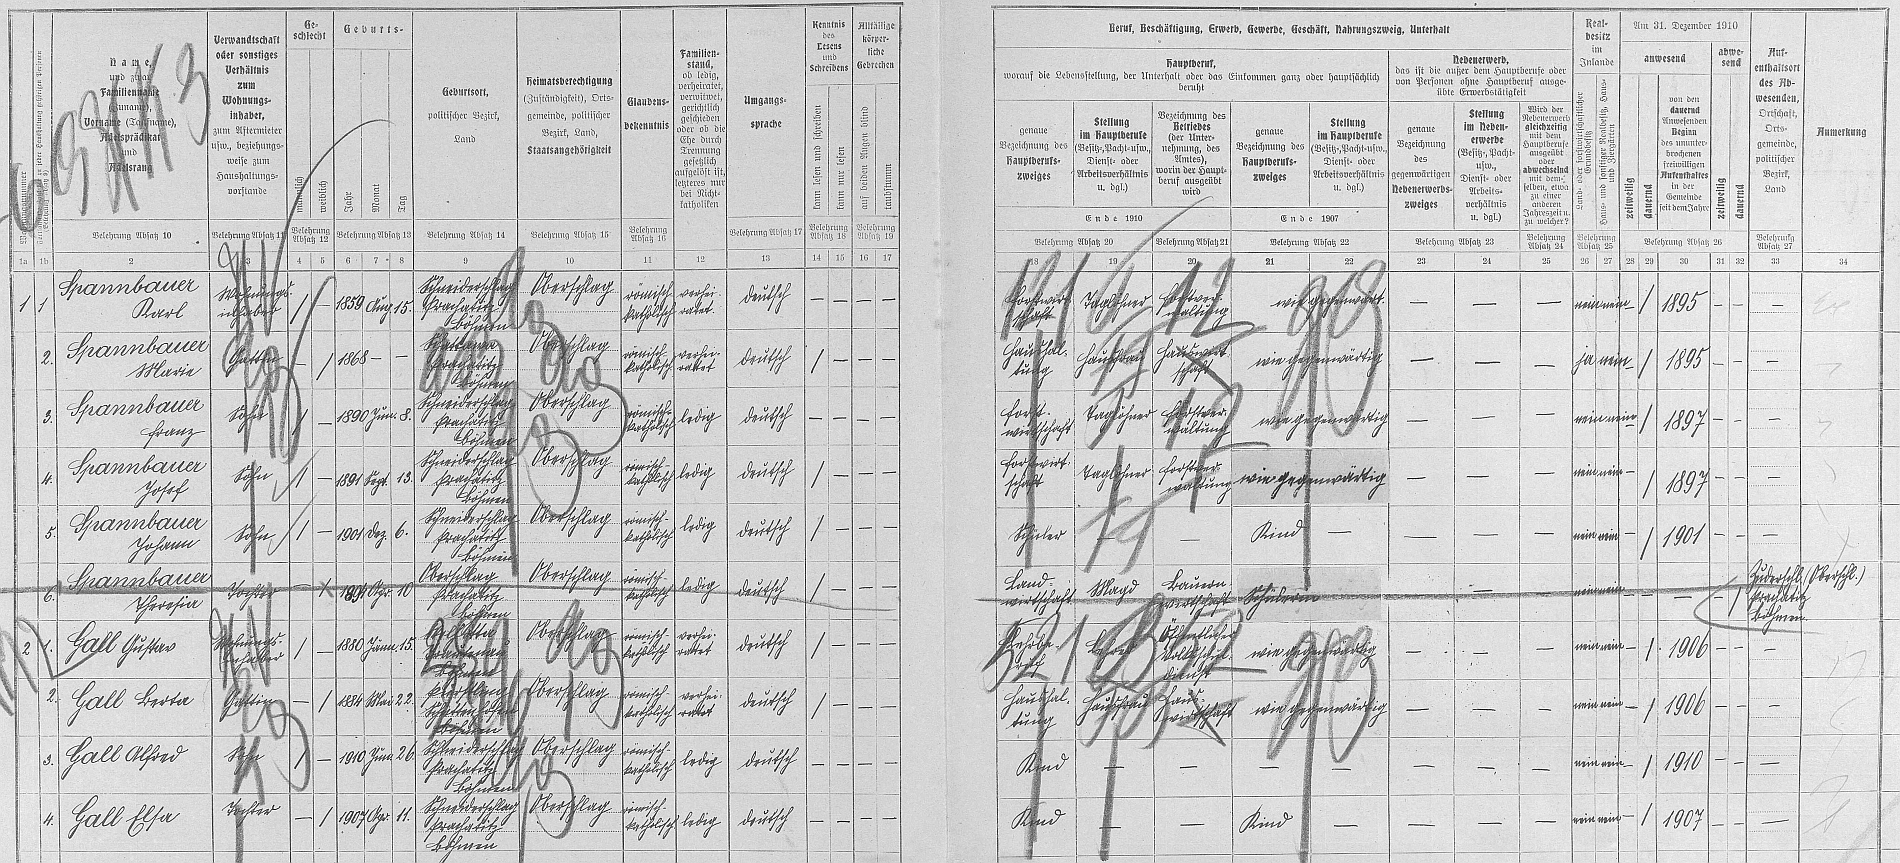 Wohnungsnummer
Name,
und zwar
Familienname
(Zuname),
Vorname (Taufname),
Adelsprädikat
und
Adelsrang
Belehrung Absatz 10
Verwandtschaft
oder sonstiges
Verhältnis
zum
Wohnungs-
inhaber,
zum Aftermieter
usw., beziehungs-
weise zum
Haushaltungs-
vorstande
Belehrung Absatz 11
Ge-
schlecht
männlich
weiblich
Belehrung
Absatz 12
Geburts-
Jahr
Monat
Tag
Belehrung Absatz 13
Geburtsort,
politischer Bezirk,
Land
Belehrung Absatz 14
Heimatsberechtigung
(Zuständigkeit), Orts-
gemeinde, politischer
Bezirk, Land,
Staatsangehörigkeit
Belehrung Absatz 15
Glaubens-
bekenntnis
Belehrung
Absatz 16
Familien-
stand,
ob ledig,
verheiratet,
verwitwet,
gerichtlich
geschieden
oder ob die
Ehe durch
Trennung
gesetzlich
aufgelöst ist,
letzteres nur
bei Nicht-
katholiken
Umgangs-
sprache
Belehrung Absatz 17
Kenntnis
des
Lesens
und
Schreibens
kann lesen und schreiben
kann nur lesen
Belehrung
Absatz 18
Allfällige
körper-
liche
Gebrechen
auf beiden Augen blind
taubstumm
Belehrung
Absatz 19
Beruf, Beschäftigung, Erwerb, Gewerbe, Geschäft, Nahrungszweig, Unterhalt
Hauptberuf,
worauf die Lebensstellung, der Unterhalt oder das Einkommen ganz oder hauptsächlich
beruht
genaue
Bezeichnung des
Hauptberufs-
zweiges
Stellung
im Hauptberufe
(Besitz-, Pacht- usw.,
Dienst- oder
Arbeitsverhältnis
u. dgl.)
Bezeichnung des
Betriebes
(der Unter-
nehmung, des
Amtes),
worin der Haupt-
beruf ausgeübt
wird
Ende 1910
Belehrung Absatz 20
Belehrung Absatz 21
genaue
Bezeichnung des
Hauptberufs-
zweiges
Stellung
im Hauptberufe
(Besitz-, Pacht- usw.,
Dienst- oder
Arbeitsverhältnis
u. dgl.)
Ende 1907
Belehrung Absatz 22
Nebenerwerb,
das ist die außer dem Hauptberufe oder
von Personen ohne Hauptberuf ausge-
übte Erwerbstätigkeit
genaue
Bezeichnung
des
gegenwärtigen
Nebenerwerbs-
zweiges
Stellung
im Neben-
erwerbe
(Besitz-, Pacht-
usw.,
Dienst- oder
Arbeits-
verhältnis
u. dgl.)
Belehrung Absatz 23
Wird der
Nebenerwerb
gleichzeitig
mit dem
Hauptberufe
ausgeübt
oder
abwechselnd
mit dem-
selben, etwa
zu einer
anderen
Jahreszeit u.
zu welcher?
Belehrung
Absatz 24
Real-
besitz
im
Inlande
Land- oder forstwirtschaftlicher
Grundbesitz
Haus- und sonstiger Realbesitz, Haus-
und Ziergärten
Belehrung
Absatz 25
Am 31. Dezember 1910
anwesend
zeitweilig
dauernd
von den
dauernd
Anwesenden
Beginn
des ununter-
brochenen
freiwilligen
Aufenthaltes
in der
Gemeinde
seit dem Jahre
abwe-
send
zeitweilig
dauernd
Belehrung Absatz 26
Auf-
enthaltsort
des Ab-
wesenden,
Ortschaft,
Orts-
gemeinde,
politischer
Bezirk,
Land
Belehrung
Absatz 27
Anmerkung
1a 1b 2 3 4 5 6 7 8 9 10 11 12 13 14 15 16 17
18 19 20 21 22 23 24 25 26 27 28 29 30 31 32 33 34
1 1 Spannbauer Karl Wohnungsinhaber / — 1859 Aug. 15. Schneiderschlag Prachatitz Böhmen Oberschlag römisch katholisch verheiratet deutsch — — — —
Forstwirtschaft Taglöhner Forstverwaltung wie gegenwärt. — — — nein nein — / 1895 — — —
2. Spannbauer Marie Gattin — / 1868 — — Prachatitz Böhmen Oberschlag römisch katholisch verheiratet deutsch / — — —
Haushaltung Hausfrau Hauswirtschaft wie gegenwärtig — — — ja nein — / 1895 — — —
3. Spannbauer Franz Sohn / — 1890 8. Schneiderschlag Prachatitz Böhmen Oberschlag römisch-katholisch ledig deutsch — — — —
Forstwirtschaft Taglöhner Forstverwaltung wie gegenwärtig — — — nein nein — / 1897 — — —
4. Spannbauer Josef Sohn / — 1891 Sept. 13. Schneiderschlag Prachatitz Böhmen Oberschlag römisch-katholisch ledig deutsch / — — —
Forstwirtschaft Taglöhner Forstverwaltung wie gegenwärtig — — — nein nein — / 1897 — — —
5. Spannbauer Johann Sohn / — 1901 Dez. 6. Schneiderschlag Prachatitz Böhmen Oberschlag römisch-katholisch ledig deutsch / — — —
Schüler — — Kind — — — — nein nein — / 1901 — — —
6. Spannbauer Theresia Tochter Apr. 10 Oberschlag Prachatitz Böhmen Oberschlag römisch-katholisch ledig deutsch / — — —
Landwirtschaft Magd Bauernwirtschaft Schülerin — — — nein nein — — — — / (Oberschl.) Prachatitz Böhmen
2 1. Gall Gustav Wohnungsinhaber / — 1880 Jänn. 15. Böhmen Oberschlag römisch-katholisch verheiratet deutsch / — — —
Lehrer Öffentlicher wie gegenwärtig — — — nein nein — / 1906 — — —
2. Gall Berta Gattin — / 1884 Mai 22. Böhmen Oberschlag römisch-katholisch verheiratet deutsch / — — —
Haushaltung Hausfrau Hauswirtschaft wie gegenwärtig — — — nein nein — / 1906 — — —
3. Gall Alfred Sohn / — 1910 26. Schneiderschlag Prachatitz Böhmen Oberschlag römisch-katholisch ledig deutsch — — — —
Kind — — — — — — — nein nein — / 1910 — — —
4. Gall Elsa Tochter — / 1907 Apr. 11. Schneiderschlag Prachatitz Böhmen Oberschlag römisch-katholisch ledig deutsch — — — —
Kind — — Kind — — — — nein nein — / 1907 — — —